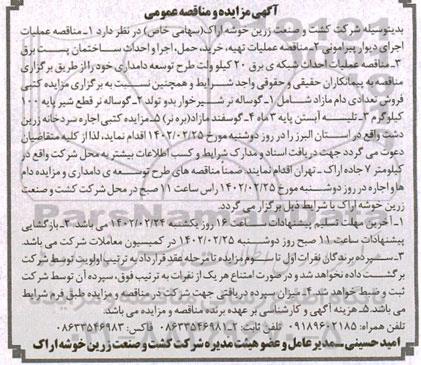 آگهی مزایده و مناقصه عمومی
بدینوسیله شرکت کشت و صنعت زرین خوشه اراک(سهامی خاص) در نظر دارد ۱ـ مناقصه عملیات
اجرای دیوار پیرامونی ۲ـ مناقصه عملیات تهیه، خرید، حمل، اجرا و احداث ساختمان پست برق
۳ـ مناقصه عملیات احداث شبکه ی برق ۲۰ کیلو ولت طرح توسعه دامداری خود را از طریق برگزاری
مناقصه به پیمانکاران حقیقی و حقوقی واجد شرایط و همچنین نسبت به برگزاری مزایده کتبی
فروش تعدادی دام مازاد شامل ۱ـ گوساله نر شیرخوار بدو تولد ۲ـ گوساله نر قطع شیر پایه ۱۰۰
کیلوگرم ۳ـ تلیسه آبستن پایه ۳ ماه ۴ـ گوسفند مازاد(بره نر) ۵ـ مزایده کتبی اجاره سردخانه زرین
دشت واقع در استان البرز را در روز دوشنبه مورخ ۱۴۰۲/۰۲/۲۵ اقدام نماید، لذا از کلیه متقاضیان
دعوت می گردد جهت دریافت اسناد و مدارک شرایط و کسب اطلاعات بیشتر به محل شرکت واقع در
کیلومتر ۷ جاده اراک ـ تهران اقدام نمایند. ضمنا مناقصه های طرح توسعه ی دامداری و مزایده دام
ها و اجاره در روز دوشنبه مورخ ۱۴۰۲/۰۲/۲۵ راس ساعت ۱۱ صبح در محل شرکت کشت و صنعت
زرین خوشه اراک با شرایط ذیل برگزار می گردد.
۱ـ آخرین مهلت تسلیم پیشنهادات ساعت ۱۶ روز یکشنبه ۱۴۰۲/۰۲/۲۴ می باشد ۲ـ بازگشایی
پیشنهادات ساعت ۱۱ صبح روز دوشنبه ۱۴۰۲/۰۲/۲۵ در کمیسیون معاملات شرکت می باشد.
۳ـ سپرده برندگان نفرات اول تا سوم مزایده تا مرحله عقد قرارداد به ترتیب اولویت توسط شرکت
برگشت داده نخواهد شد و در صورت امتناع هر یک از نفرات به ترتیب فوق، سپرده آن توسط شرکت
ثبت و ضبط خواهد شد. ۴ـ میزان سپرده دریافتی جهت شرکت در مناقصه و مزایده طبق فرم شرایط
می باشد. ۵ـ هزینه آگهی و کارشناسی بر عهده برنده مناقصه و مزایده می باشد.
تلفن همراه: ۰۹۱۸۹۶۰۲۱۸۵ تلفن ثابت: ۲ـ۰۸۶۳۳۵۴۶۹۸۱ فاکس: ۰۸۶۳۳۵۴۶۹۸۳
امید حسینی ـ مدیرعامل و عضو هیئت مدیره شرکت کشت و صنعت زرین خوشه اراک